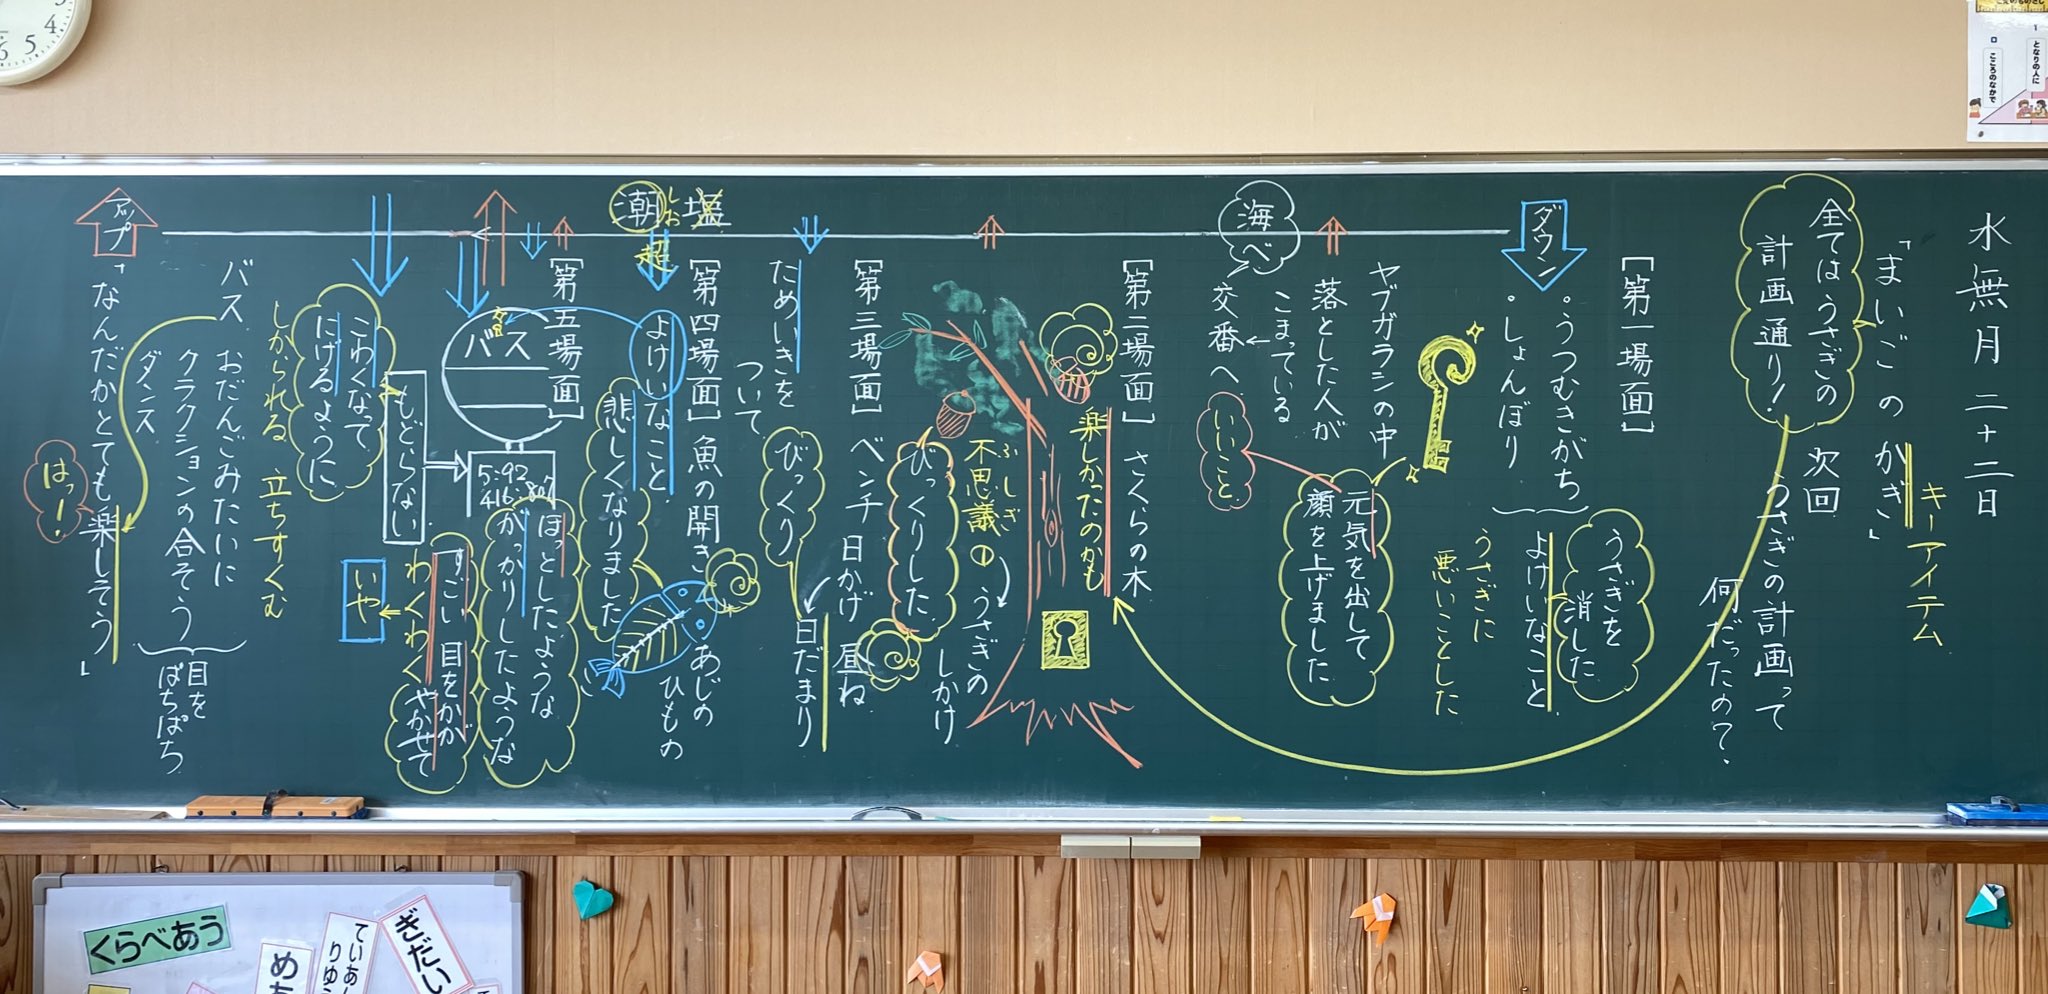 水無月 二十二日
「まいごのかぎ」
キーアイテム
全てはうさぎの
計画通り！
次回
うさぎの計画って
何だったの？
［第一場面］
・うつむきがち
・しょんぼり
うさぎを
消した
よけいなこと
うさぎに
悪いことした
ダウン
ヤブガラシの中
落とした人が
こまっている
交番へ
海べ
元気を出して、
顔を上げました
いいこと
［第二場面］ さくらの木
楽しかったのかも
ふしぎ
不思議① うさぎの
しかけ
びっくりした
［第三場面］ ベンチ 日かげ 昼ね
日だまり
ためいきを
ついて
びっくり
［第四場面］ 魚の開き あじの
ひもの
塩
しお
潮
超
よけいなこと
悲しくなりました
［第五場面］
バス
5:92
ほっとしたような
がっかりしたような
すごい 目をかが
やかせて
わくわく
いや
もどらない
こわくなって
にげるように
しかられる 立ちすくむ
バス おだんごみたいに
クラクションの合そう
ダンス
目を
ぱちぱち
アップ
「なんだかとても楽しそう」
はっ！
くらべあう
ぎだい
ていあん
りゆう
となりの人に
こころのなかで
3
4
5
6